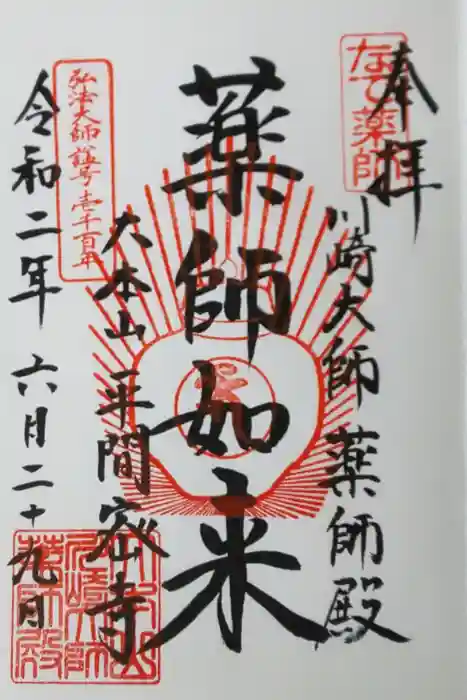 奉拝
なで薬師
川崎大師薬師殿
薬師如来
大本山平間寺
弘法大師諡号壱千百年
令和二年六月二十九日